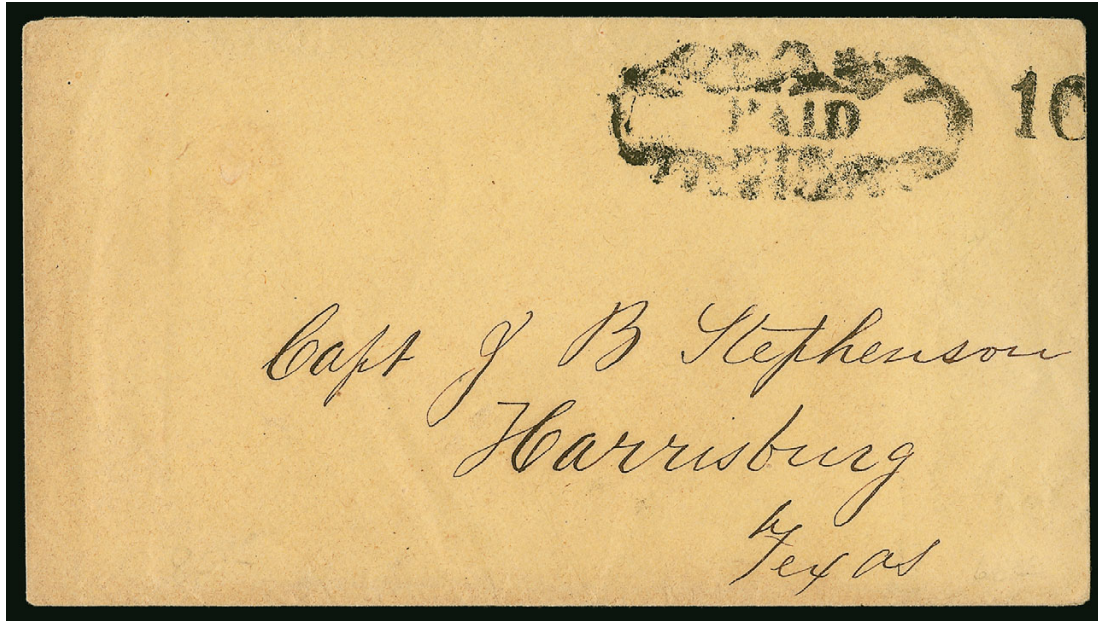 PAID
10
Capt J B Stephenson
Harrisburg
Texas